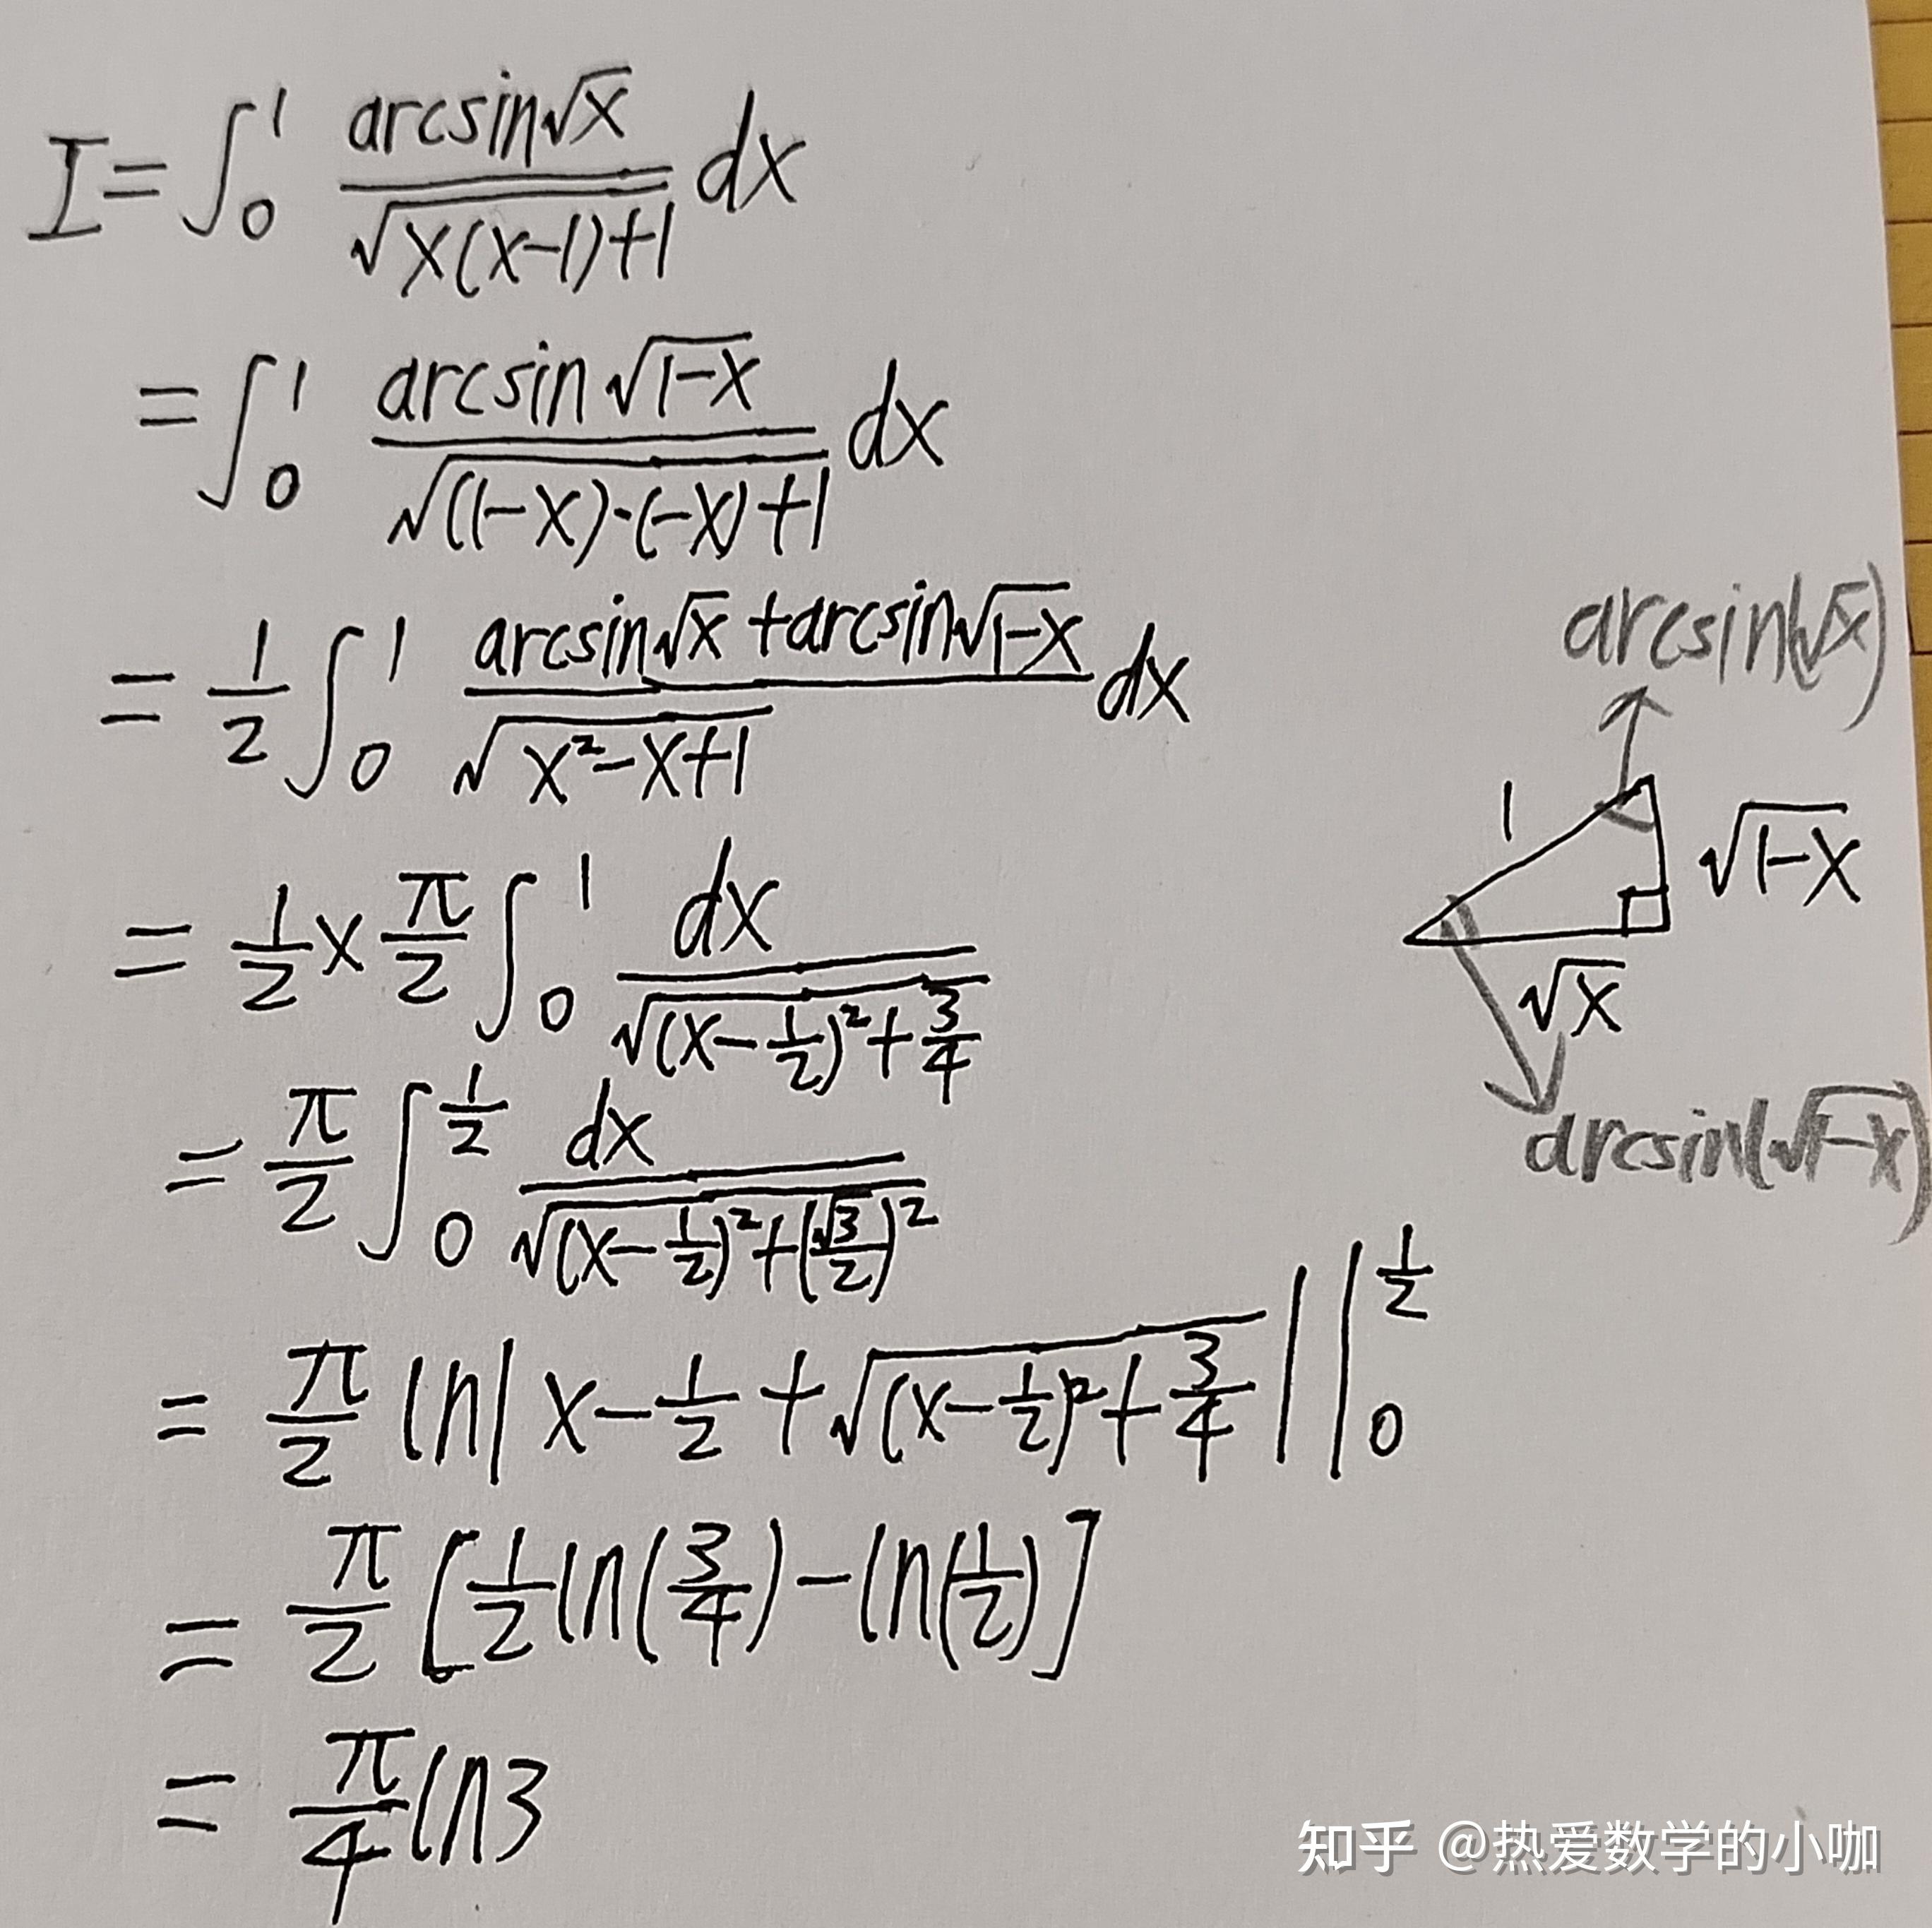 I = ∫₀¹ arcsin√x / √(x(x-1)+1) dx
= ∫₀¹ arcsin√(1-x) / √((1-x)·(-x)+1) dx
= 1/2 ∫₀¹ (arcsin√x + arcsin√(1-x)) / √(x²-x+1) dx
= 1/2 × π/2 ∫₀¹ dx / √((x-1/2)²+3/4)
= π/2 ∫₀^(1/2) dx / √((x-1/2)²+(√3/2)²)
= π/2 ln|x-1/2+√((x-1/2)²+3/4)| |₀^(1/2)
= π/2 [1/2 ln(3/4) - ln(1/2)]
= π/4 ln3
arcsin(√x)
1
√(1-x)
√x
arcsin(√(1-x))
知乎 @热爱数学的小咖